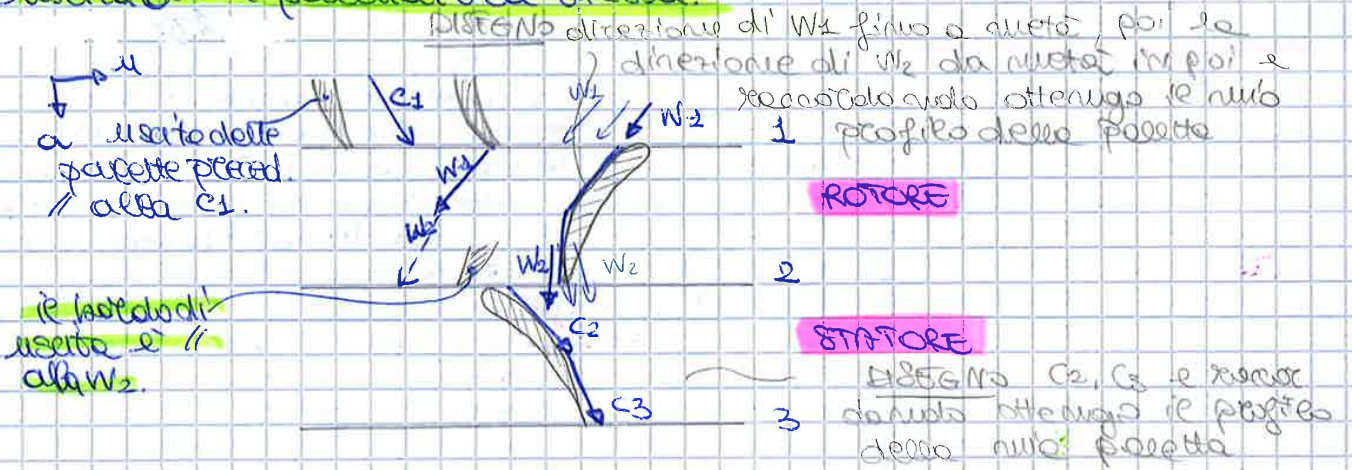 DISEGNO direzione di W1 fino a metà, poi la
direzione di W2 da metà in poi e
raccordando ottengo il mio
profilo della paletta
u
a
uscita delle
palette preced.
// alla C1.
C1
W1
W1
W1
1
ROTORE
W2
W2
W2
2
il bordo di
uscita è //
alla W2.
C2
STATORE
DISEGNO C2, C3 e raccor
dando ottengo il profilo
della mia paletta
C3
3